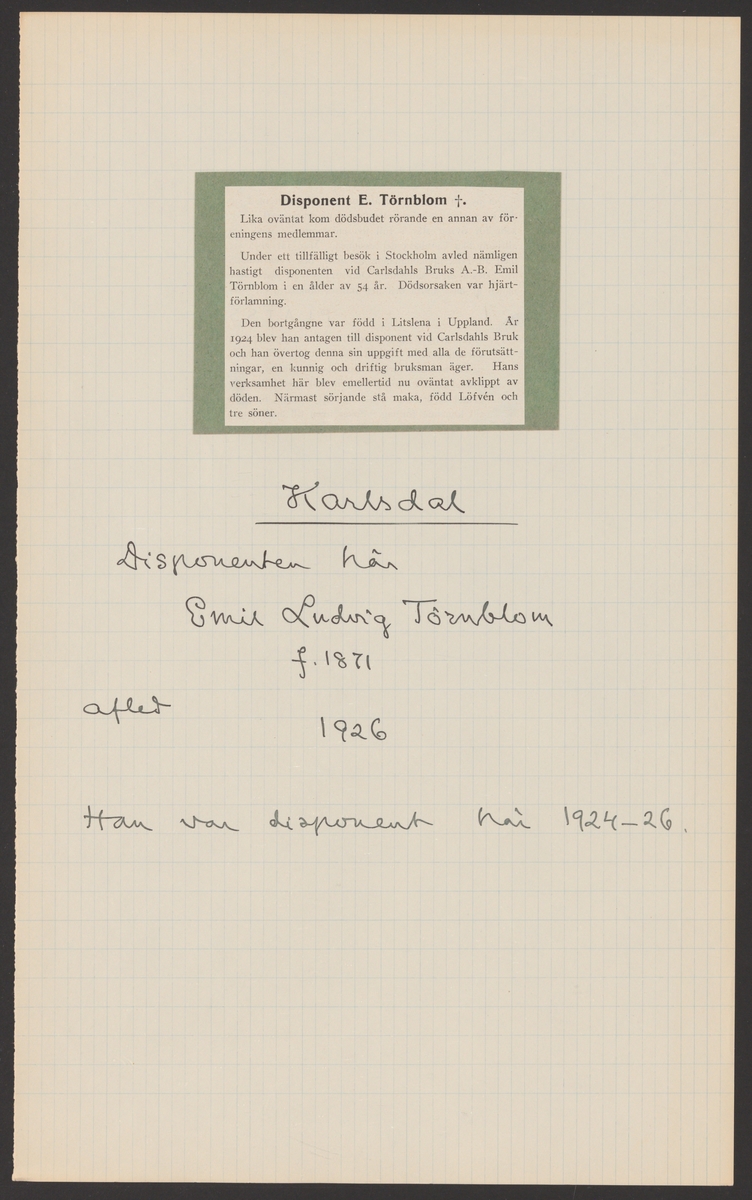 Disponent E. Törnblom †.
Lika oväntat kom dödsbudet rörande en annan av för-
eningens medlemmar.
Under ett tillfälligt besök i Stockholm avled nämligen
hastigt disponenten vid Carlsdahls Bruks A.-B. Emil
Törnblom i en ålder av 54 år. Dödsorsaken var hjärt-
förlamning.
Den bortgångne var född i Litslena i Uppland. År
1924 blev han antagen till disponent vid Carlsdahls Bruk
och han övertog denna sin uppgift med alla de förutsätt-
ningar, en kunnig och driftig bruksman äger. Hans
verksamhet här blev emellertid nu oväntat avklippt av
döden. Närmast sörjande stå maka, född Löfvén och
tre söner.
Karlsdal
Disponenten här
Emil Ludvig Törnblom
f. 1871
afled
1926
Han var disponent här 1924–26.